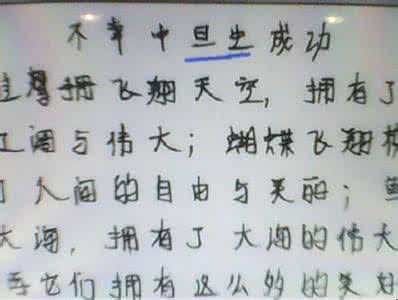 不幸中旦生成功
鹰拥飞翔天空，拥有了
阔与伟大；蝴蝶飞翔
了人间的自由与美丽；
大海，拥有了大海的伟大
它们拥有这么多的美好